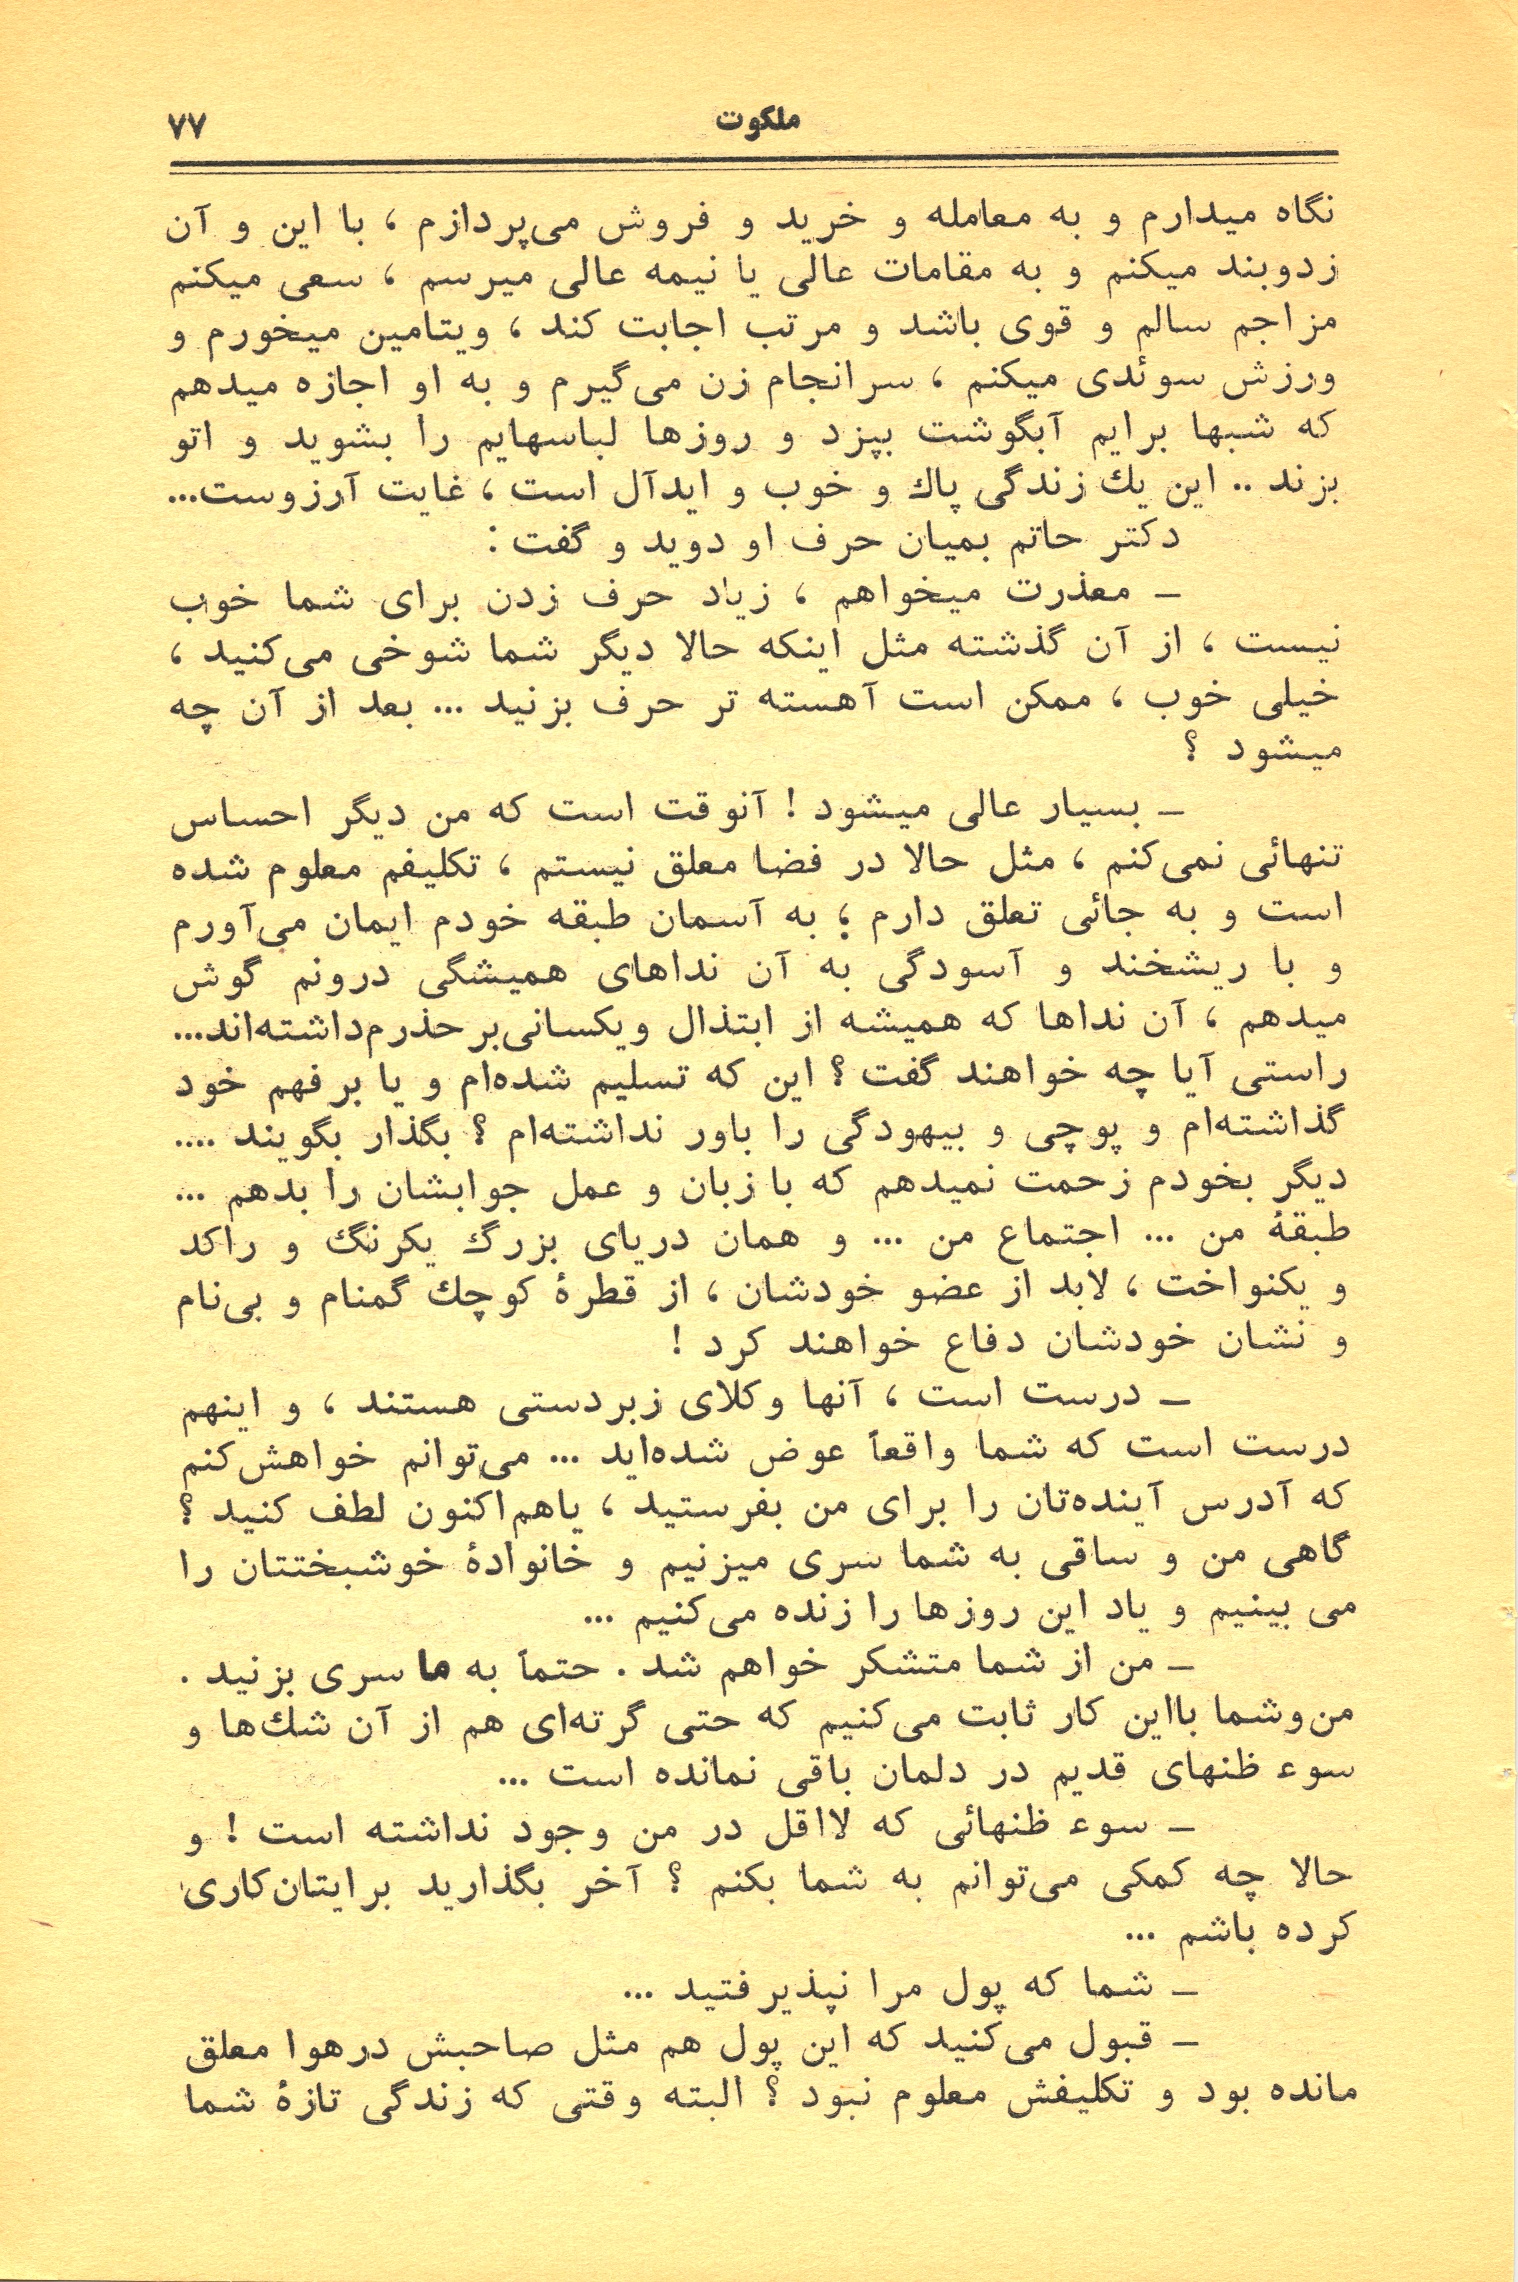 ملکوت
۷۷
نگاه میدارم و به معامله و خرید و فروش می‌پردازم ، با این و آن
زدوبند میکنم و به مقامات عالی یا نیمه عالی میرسم ، سعی میکنم
مزاجم سالم و قوی باشد و مرتب اجابت کند ، ویتامین میخورم و
ورزش سوئدی میکنم ، سرانجام زن می‌گیرم و به او اجازه میدهم
که شبها برایم آبگوشت بپزد و روزها لباسهایم را بشوید و اتو
بزند .. این یك زندگی پاك و خوب و ایدآل است ، غایت آرزوست...
دکتر حاتم بمیان حرف او دوید و گفت :
ـ معذرت میخواهم ، زیاد حرف زدن برای شما خوب
نیست ، از آن گذشته مثل اینکه حالا دیگر شما شوخی می‌کنید ،
خیلی خوب ، ممکن است آهسته تر حرف بزنید ... بعد از آن چه
میشود ؟
ـ بسیار عالی میشود ! آنوقت است که من دیگر احساس
تنهائی نمی‌کنم ، مثل حالا در فضا معلق نیستم ، تکلیفم معلوم شده
است و به جائی تعلق دارم ؛ به آسمان طبقه خودم ایمان می‌آورم
و با ریشخند و آسودگی به آن نداهای همیشگی درونم گوش
میدهم ، آن نداها که همیشه از ابتذال ویکسانی‌برحذرم‌داشته‌اند...
راستی آیا چه خواهند گفت ؟ این که تسلیم شده‌ام و یا بر فهم خود
گذاشته‌ام و پوچی و بیهودگی را باور نداشته‌ام ؟ بگذار بگویند ....
دیگر بخودم زحمت نمیدهم که با زبان و عمل جوابشان را بدهم ...
طبقهٔ من ... اجتماع من ... و همان دریای بزرگ یکرنگ و راکد
و یکنواخت ، لابد از عضو خودشان ، از قطرهٔ کوچك گمنام و بی‌نام
و نشان خودشان دفاع خواهند کرد !
ـ درست است ، آنها وکلای زبردستی هستند ، و اینهم
درست است که شما واقعاً عوض شده‌اید ... می‌توانم خواهش‌کنم
که آدرس آینده‌تان را برای من بفرستید ، یاهم‌اکنون لطف کنید ؟
گاهی من و ساقی به شما سری میزنیم و خانوادهٔ خوشبختتان را
می بینیم و یاد این روزها را زنده می‌کنیم ...
ـ من از شما متشکر خواهم شد . حتماً به ما سری بزنید .
من‌وشما بااین کار ثابت می‌کنیم که حتی گرته‌ای هم از آن شك‌ها و
سوء ظنهای قدیم در دلمان باقی نمانده است ...
ـ سوء ظنهائی که لااقل در من وجود نداشته است ! و
حالا چه کمکی می‌توانم به شما بکنم ؟ آخر بگذارید برایتان‌کاری
کرده باشم ...
ـ شما که پول مرا نپذیرفتید ...
ـ قبول می‌کنید که این پول هم مثل صاحبش درهوا معلق
مانده بود و تکلیفش معلوم نبود ؟ البته وقتی که زندگی تازهٔ شما